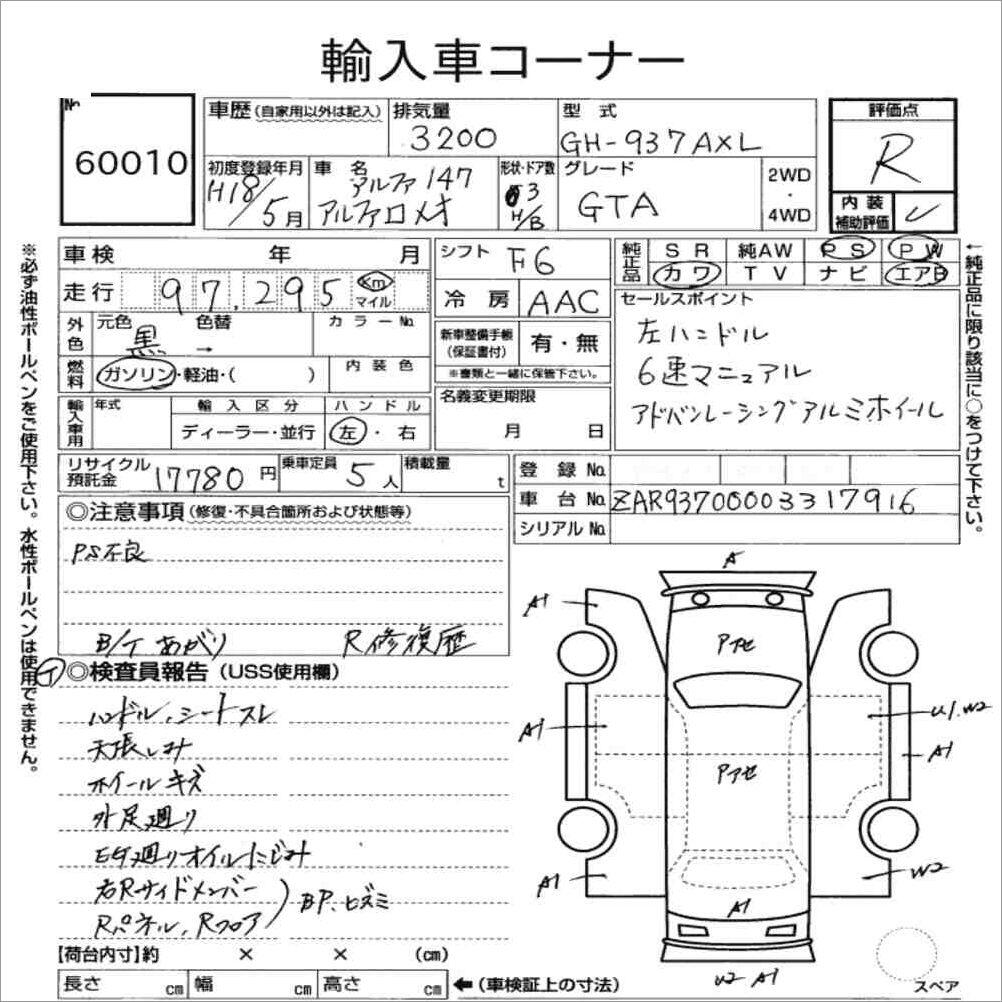 輸入車コーナー
No.
60010
車歴 (自家用以外は記入)
排気量
3200
型式
GH-937AXL
評価点
R
初度登録年月
H18/5月
車名
アルファ147
アルファロメオ
形状・ドア数
3
H/B
グレード
GTA
2WD
・
4WD
内装
補助評価
※必ず油性ボールペンをご使用下さい。水性ボールペンは使用できません。
車検 年 月
シフト
F6
純正品
SR 純AW PS PW
カワ TV ナビ エアB
←純正品に限り該当に○をつけて下さい。
走行
97,295
km
マイル
冷房
AAC
セールスポイント
左ハンドル
6速マニュアル
アドバンレーシングアルミホイール
外色
元色 色替
黒 →
カラーNo.
新車整備手帳
(保証書付)
有・無
※書類と一緒に保管下さい。
燃料
ガソリン・軽油・( )
内装色
名義変更期限
月 日
輸入車用
年式
輸入区分
ディーラー・並行
ハンドル
左・右
リサイクル
預託金
17780円
乗車定員
5人
積載量
t
登録No.
車台No.
ZAR93700003317916
シリアルNo.
◎注意事項 (修復・不具合箇所および状態等)
PS不良
B/Tあがり R修復歴
イ
◎検査員報告 (USS使用欄)
ハンドル、シートスレ
天張しみ
ホイールキズ
外足廻り
Eg廻りオイルにじみ
右Rサイドメンバー
Rパネル、Rフロア
BP.ヒズミ
A
A1
Pアセ
A1
U1.W2
A1
Pアセ
A1
W2
A1
W2 A1
スペア
【荷台内寸】約 × × (cm)
長さ cm 幅 cm 高さ cm
←(車検証上の寸法)